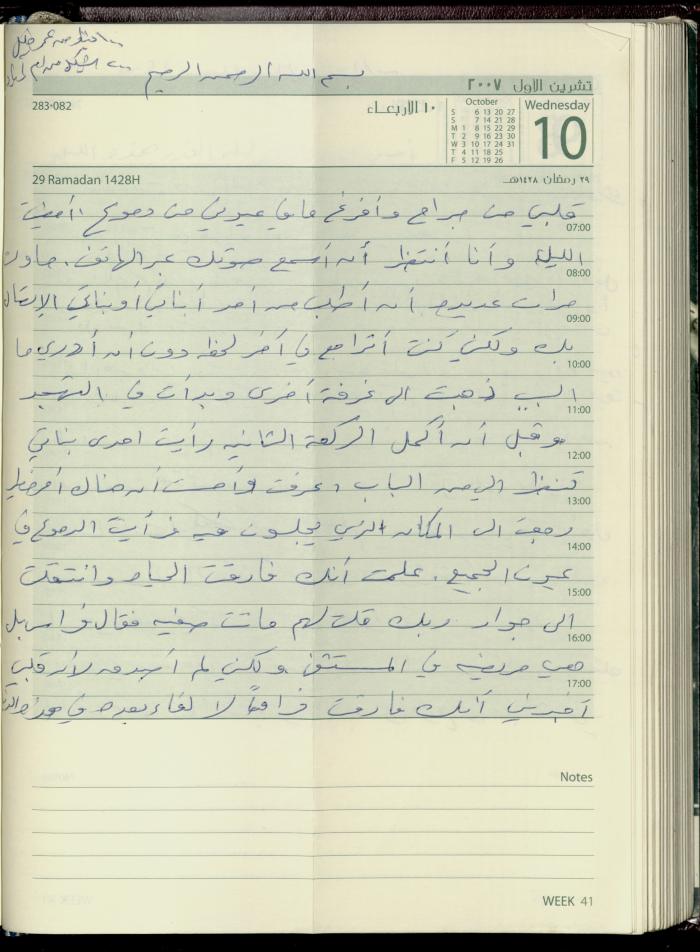 بسم الله الرحمن الرحيم
تشرين الاول ٢٠٠٧
283-082
١٠ الاربعـاء
October
S 6 13 20 27
S 7 14 21 28
M 1 8 15 22 29
T 2 9 16 23 30
W 3 10 17 24 31
T 4 11 18 25
F 5 12 19 26
Wednesday
10
29 Ramadan 1428H
٢٩ رمضان ١٤٢٨هـ
قلبي من جراح وأفرغ ما في عيوني من دموع
07:00
الليلة وأنا أنتظر أن أسمع صوتك عبر الهاتف. حاولت
08:00
مرات عديدة أن أطلب من أحد أبنائي أو بناتي الإتصال
09:00
بك ولكن كنت أتراجع في آخر لحظة دون أن أدري ما
10:00
السبب ذهبت الى غرفة أخرى وبدأت في التهجد
11:00
وقبل أن أكمل الركعة الثانيه رأيت احدى بناتي
12:00
تنظر الي من الباب وعرفت وأحسست أن هناك أمر خطير
13:00
رجعت الى المكان الذي يجلسون فيه فرأيت الدموع في
14:00
عيون الجميع. علمت أنك فارقت الحياة وانتقلت
15:00
الى جوار ربك قلت لهم ماتت صفيه فقال فراس بل
16:00
هي مريضه في المستشفى ولكني لم أصدقه لأن قلبي
17:00
أخبرني أنك فارقت فراقاً لا لقاء بعده في هذه
Notes
WEEK 41